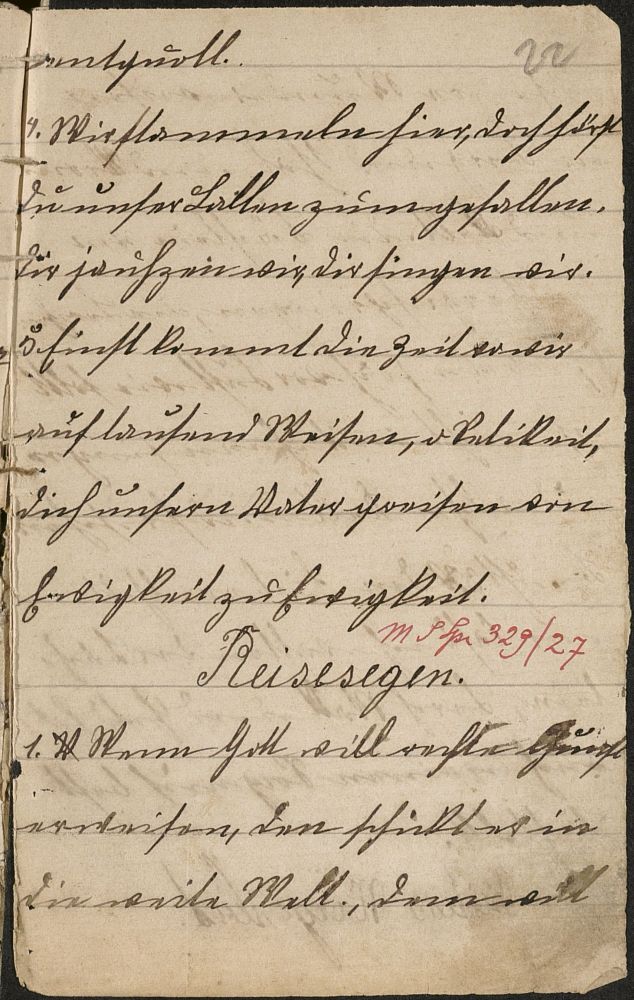 entquoll.
22
4. Wir stammeln hier, doch hörst
du unser Lallen zum gefallen.
dir jauhzen wir, dir singen wir.
5 Einst kommt die Zeit wo wir
auf tausend Weisen, o Selikeit,
dich unsern Vater preisen von
Ewigkeit zu Ewigkeit.
329/27
Reisesegen.
1. Wenn Gott will rechte Gunst
erweisen, den schickt er in
die weite Welt., dem will